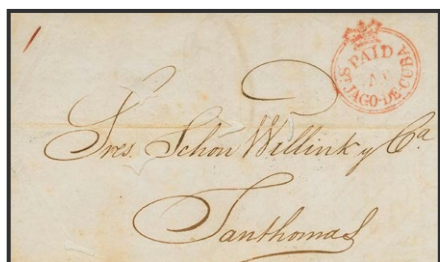 PAID
ST JAGO-DE-CUBA
Sres. Schön Willink y Ca
Santhomas